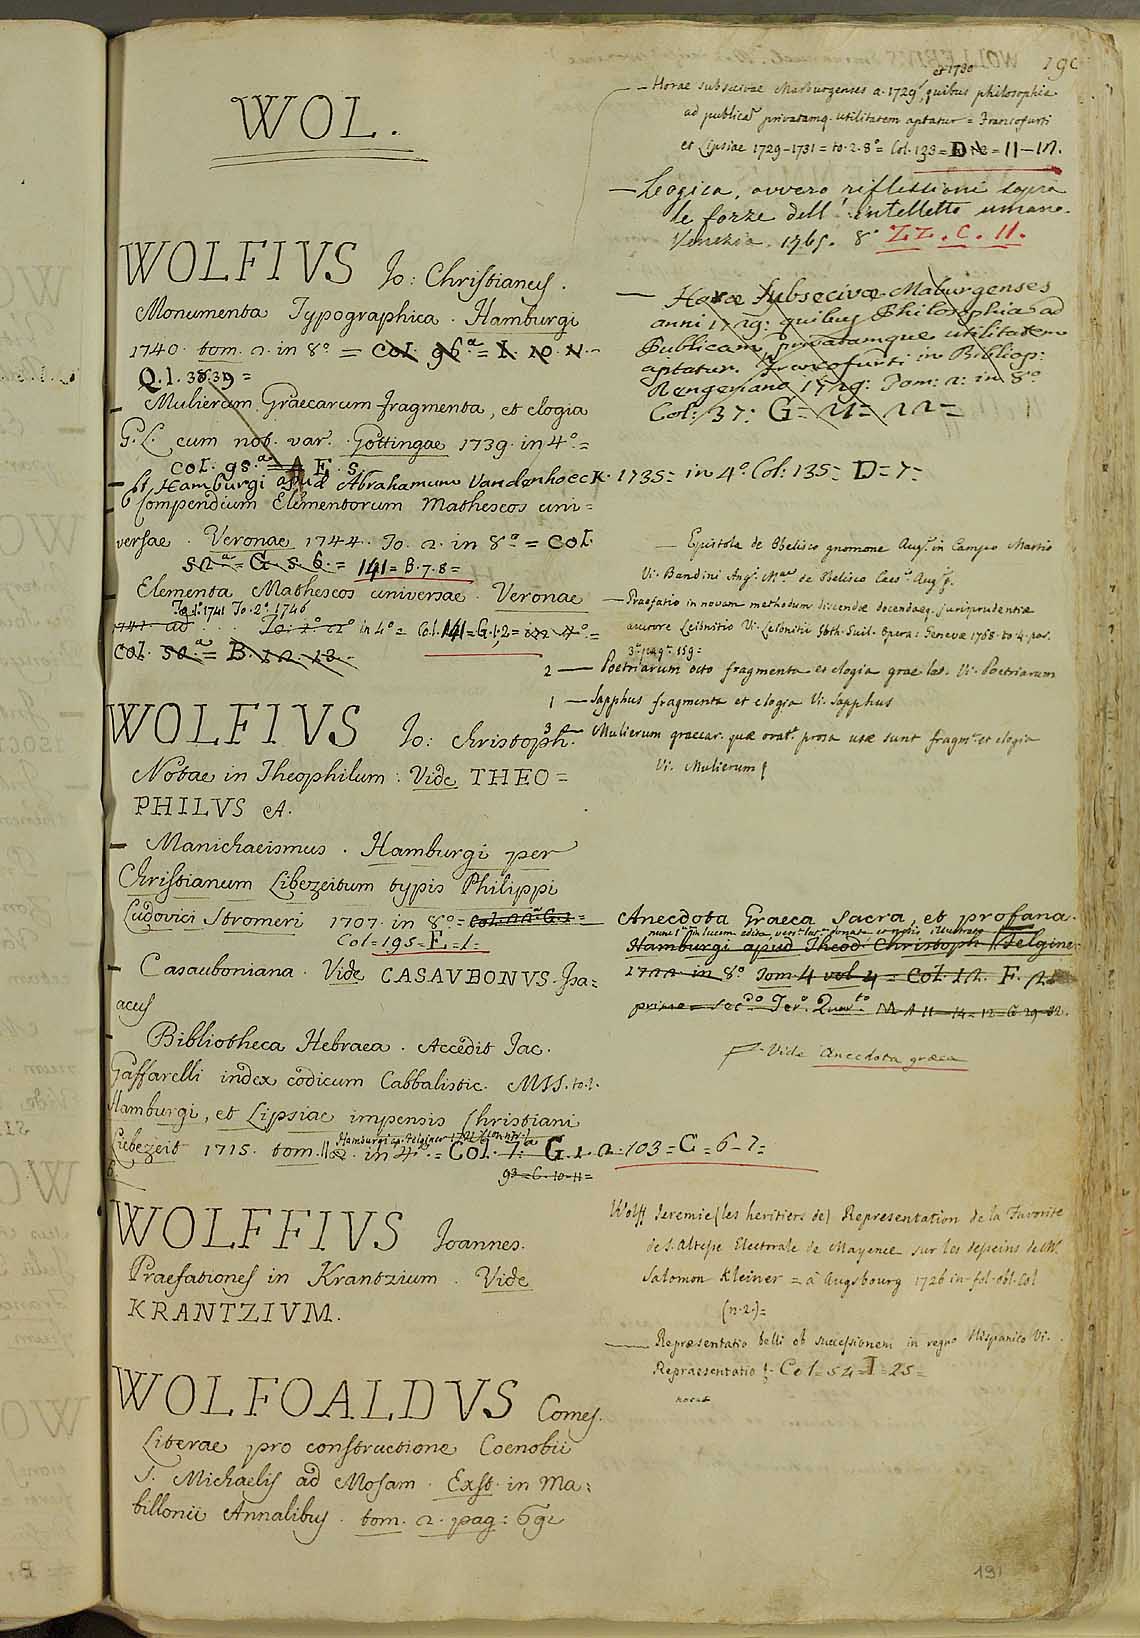 WOL.
WOLFIVS Jo: Christianus.
Monumenta Typographica. Hamburgi
1740. tom. 2. in 8º = Col. 96.ª = I. 10. 11.
Q. I. 38.39 =
— Mulierum Graecarum fragmenta, et elogia
G. L. cum not. var. Gottingae 1739. in 4º =
Col. 95.ª = A F. 5.
— Hamburgi apud Abrahamum Vandenhoeck. 1735 = in 4º Col: 135 = D = 7 =
— Compendium Elementorum Matheseos uni=
versae. Veronae 1744. To. 2. in 8º = Col.
52.ª = G. 5. 6. = 141 = B. 7. 8 =
Elementa Matheseos universae. Veronae
To. 1º 1741 To. 2º 1746
in 4º = Col. 141 = G. 1, 2 = in 4º =
Col. 50.ª = B. 12. 13.
WOLFIVS Jo: Christoph.
Notae in Theophilum. Vide THEO=
PHILVS A.
— Manichaeismus. Hamburgi per
Christianum Libezeitum typis Philippi
Ludovici Stromeri 1707. in 8º =
Col = 195 = E = 1 =
— Casauboniana. Vide CASAVBONVS. Isa=
acus
— Bibliotheca Hebraea. Accedit Jac.
Gaffarelli index codicum Cabbalistic. MSS. to. 1.
Hamburgi, et Lipsiae impensis Christiani
Liebezeit 1715. tom. in 4º = Col. 7.ª G. 1. 2. 103 = C = 6 - 7 =
93 = C. 10 - 11 =
WOLFFIVS Joannes.
Praefationes in Krantzium. Vide
KRANTZIVM.
WOLFOALDVS Comes.
Literae pro constructione Coenobii
S. Michaelis ad Mosam. Exst. in Ma=
billonii Annalibus. tom. 2. pag: 691
190
et 1730
— Horae subsecivae Marburgenses a. 1729, quibus philosophia
ad publicã privatamq. utilitatem aptatur = Francofurti
et Lipsiae 1729-1731 = to. 2. 8º = Col. 133 = D = 11 - 12.
— Logica, ovvero riflessioni sopra
le forze dell' intelletto umano.
Venezia. 1765. 8º ZZ. C. 11.
— Horae Subsecivae Maburgenses
anni 1729: quibus Philosophia ad
Publicam, privatamque utilitatem
aptatur. Francofurti in Bibliop:
Rengeriano 1729: Tom: 2: in 8º
Col: 37: G = 21 = 22 =
— Epistola de Obelisco gnomone Aug. in Campo Martio
Vi. Bandini Ang. M. de Obelisco Caes. Aug.
— Praefatio in novam methodum discendae docendaeq. jurisprudentiae
auctore Leibnitio Vi. Leibnitii Goth. Guil. Opera: Genevae 1768. to. 4. par.
3.ª pag. 159 =
2 — Poetriarum octo fragmenta et elogia grae. lat. Vi. Poetriarum
1 — Sapphus fragmenta et elogia Vi. Sapphus
3 — Mulierum graecar. quae orat. prosa usae sunt fragm. et elogia
Vi. Mulierum
Anecdota Graeca Sacra, et profana.
nunc in lucem edita
Hamburgi apud Theod. Christoph Felginer
1722 in 8º Tom. 4 vol 4 = Col. 12. F.
primo = Sec.do Ter.o Quar.to
Vide Anecdota graeca
Wolff Jeremie (les heritiers de) Representation de la Favorite
de S. Altesse Electorale de Mayence sur les desseins de Mr.
Salomon Kleiner = à Augsbourg 1726 in-fol. obl. Col
(n. 2.) =
— Repraesentatio belli ob successionem in regno Hispanico Vi.
Repraesentatio Col = 54 = I = 25 =
191